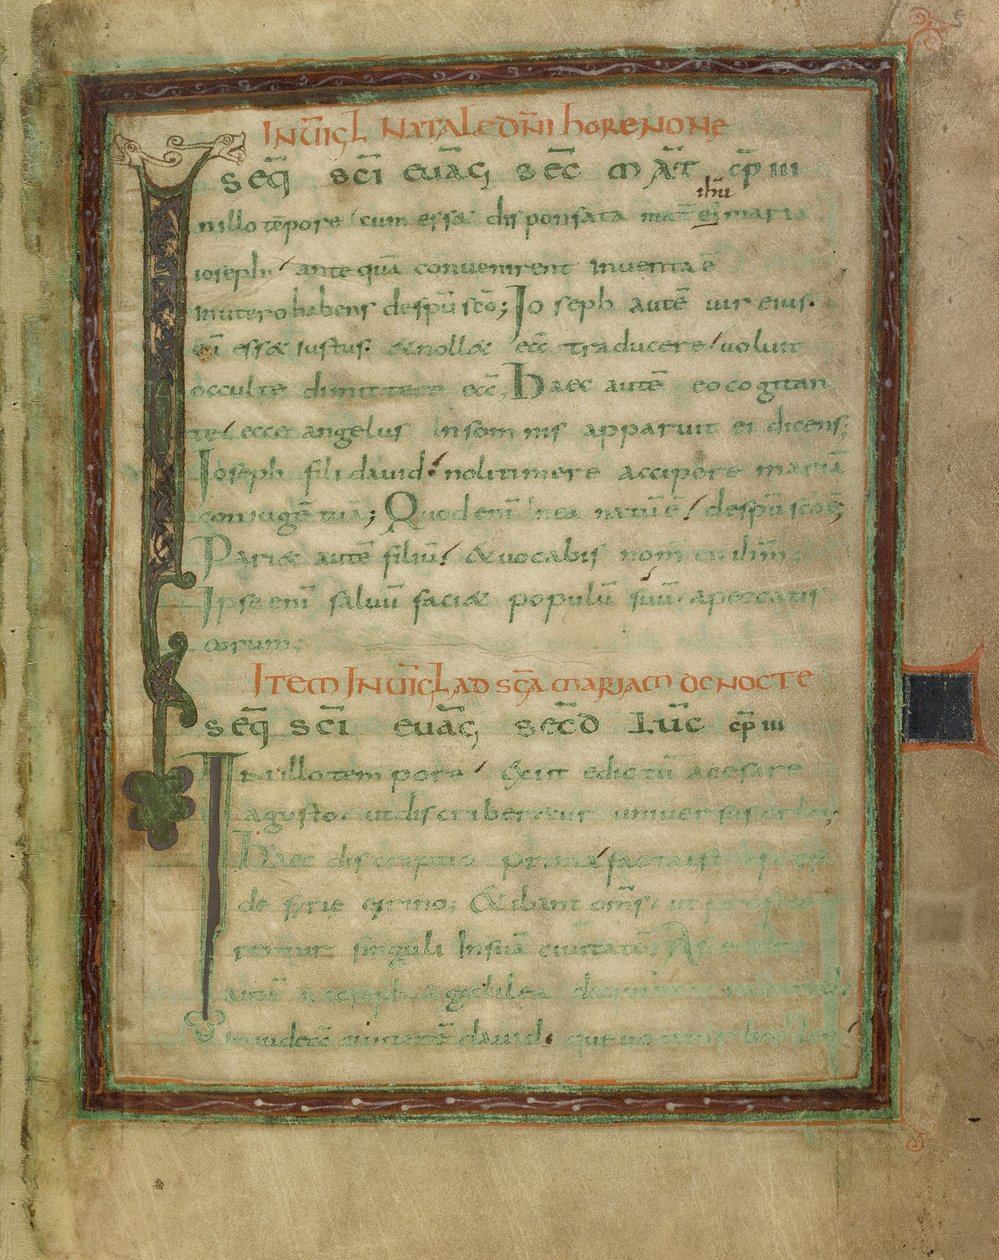 5
IN UIGL NATALE DNI hORE NONE
SEQ SCI EUAG SEC MAT CP III
nillo tempore cum esset disponsata mat ei maria
ihu
ioseph ante quā convenirent inventa ē
in utero habens de spū scō; Joseph autē vir eius.
eēt iustus. & nollet eā traducere voluit
occulte dimittere eā; Haec autē eo cogitan
te ecce angelus in somnis apparuit ei dicens;
Joseph fili david. noli timere accipere mariā
conjugē tuā; Quod enī in ea natū ē. de spū scō ē;
Pariet autē filiū. & vocabis nom ei ihm.
Ipse enī salvū faciet populū suū a peccatis
eorum;
ITEM IN UIGL AD SCA MARIAM DE NOCTE
SEQ SCI EUAG SECD LUC CP III
In illo tempore Exiit edictū a cesare
agusto. ut discriberetur universus orbis;
Haec discriptio prima facta est
de sirie cirino; & ibant oms. ut
rentur singuli in suā civitatē; As
autē & ioseph a galilea de
in iudeā civitatē david. que vo